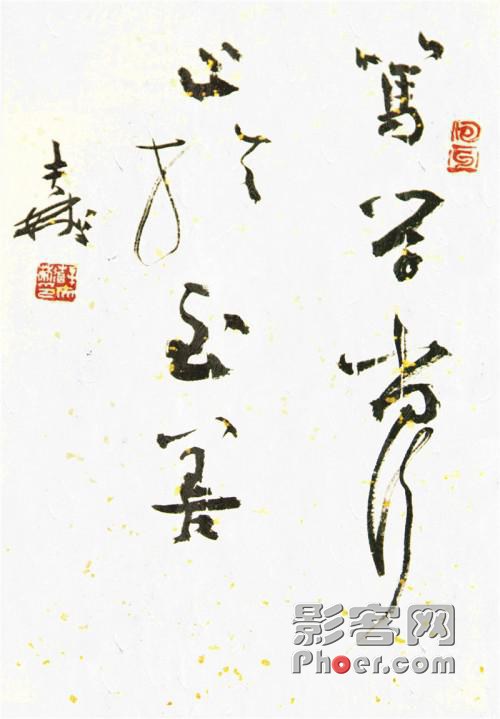 篤学尚行
止於至善
影客网
Phoer.com